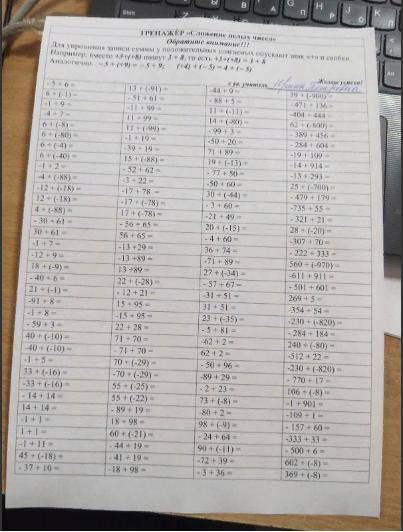 ТРЕНАЖЁР «Сложение целых чисел»
Обратите внимание!!!
Для упрощения записи суммы у положительных слагаемых опускают знак «+» и скобки.
Например, вместо +3+(+8) пишут 3 + 8, то есть +3+(+8) = 3 + 8
Аналогично: – 5 + (+9) = – 5 + 9; (+4) + (– 5) = 4 + (– 5)
Желаю успехов!
-5 + 6 = 13 + (-91) = -44 + 9 = 39 + (-900) =
6 + (-1) = - 51 + 61 = - 88 + 5 = 471 + 136 =
-1 + 9 = -11 + 99 = 11 + (-11) = -404 + 444 =
-4 + 7 = 11 + 99 = 14 + (-80) = 62 + (-800) =
6 + (-8) = 11 + (-99) = - 99 + 3 = - 389 + 456 =
6 + (-80) = -1 + 19 = -50 + 20 = - 284 + 604 =
6 + (-4) = -39 + 19 = 71 + 89 = -19 + 109 =
6 + (-40) = 15 + (-88) = 19 + (-13) = -14 + 914 =
-1 + 2 = - 52 + 62 = - 77 + 50 = -13 + 293 =
-4 + (-88) = -3 + 22 = -50 + 60 = 25 + (-700) =
-12 + (-18) = -17 + 78 = 30 + (-44) = - 479 + 179 =
12 + (-18) = -17 + (-78) = - 3 + 60 = -735 + 55 =
4 + (-88) = 17 + (-78) = -21 + 49 = - 321 + 21 =
- 30 + 61 = - 56 + 65 = 20 + (-15) = 28 + (-20) =
30 + 61 = 56 + 65 = - 4 + 60 = -307 + 70 =
-1 + 7 = -13 +29 = 36 + 74 = - 222 + 333 =
-12 + 9 = -13 +89 = -71 + 89 = 560 + (-970) =
18 + (-9) = 13 +89 = 27 + (-34) = -611 + 911 =
- 40 + 6 = 22 + (-28) = - 57 + 67 = - 501 + 601 =
21 + (-1) = - 12 + 21 = -31 + 51 = 269 + 5 =
-91 + 8 = 15 + 95 = 31 + 51 = -354 + 54 =
-1 + 8 = -15 + 95 = 23 + (-35) = -230 + (-820) =
- 59 + 3 = 22 + 28 = - 5 + 81 = - 284 + 184 =
40 + (-10) = 71 + 70 = -62 + 2 = 240 + (-80) =
-40 + (-10) = - 71 + 70 = 62 + 2 = -512 + 22 =
-1 + 5 = 70 + (-29) = - 50 + 96 = -230 + (-820) =
33 + (-16) = -70 + (-29) = -89 + 29 = - 770 + 17 =
-33 + (-16) = 55 + (-25) = - 2 + 23 = 106 + (-8) =
- 14 + 14 = 55 + (-22) = 73 + (-8) = -1 + 901 =
14 + 14 = - 89 + 19 = -80 + 2 = -109 + 1 =
-1 + 1 = 18 + 98 = 98 + (-9) = - 157 + 60 =
1 + 1 = 60 + (-21) = - 24 + 64 = -333 + 33 =
-1 + 11 = - 44 + 19 = 90 + (-11) = - 500 + 6 =
45 + (-18) = - 41 + 19 = -72 + 39 = 602 + (-8) =
- 37 + 10 = -18 + 98 = - 3 + 36 = 369 + (-8) =